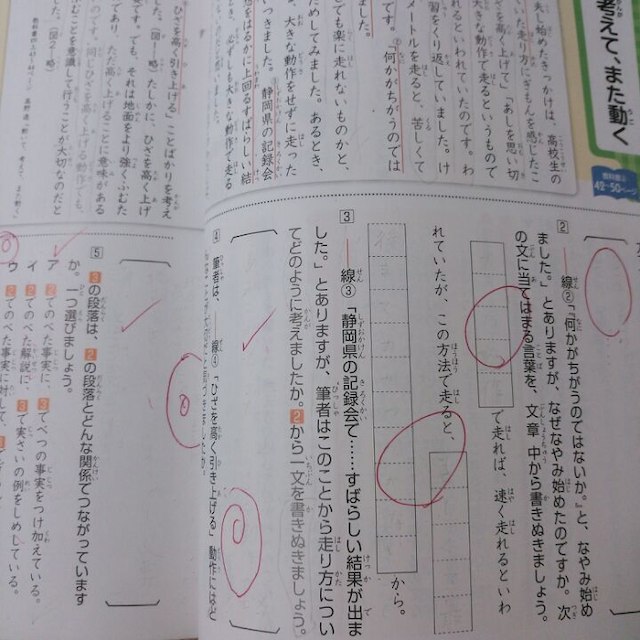 考えて、また動く
教科書上
42〜50ページ
夫し始めたきっかけは、高校生の
た走り方にぎもんを感じたこ
ざを高く上げて」「あしを思い切
、大きな動作で走るというもので
れるといわれていたのです。わ
習をくり返していました。け
メートルを走ると、苦しくて
す。「何かがちがうのでは
ました。
でも楽に走れないものかと、
ためしてみました。あるとき、
、大きな動作をせずに走った
想をはるかに上回るすばらしい結
いつきました。静岡県の記録会
、必ずしも大きな動作で走る
2 ―線②「何かがちがうのではないか。」と、なやみ始め
ました。とありますが、なぜなやみ始めたのですか。次
の文に当てはまる言葉を、文章中から書きぬきましょう。
で走れば、速く走れるといわ
れていたが、この方法で走ると、
から。
3 ―線③「静岡県の記録会で……すばらしい結果が出ま
した。」とありますが、筆者はこのことから走り方につい
てどのように考えましたか。2から一文を書きぬきましょう。
4 筆者は、―線④「ひざを高く引き上げる」動作にはど
ひざを高く引き上げる」ことばかりを考え
した。(図1―略)たしかに、ひざを高く上げ
実です。でも、それは地面をより強くふむた
であり、ただ高く上げることに意味がある
のです。同じひざを高く上げる動作でも、
なことを意識して行うことが大切なのだと
した。(図2―略)
5 3の段落は、2の段落とどんな関係でつながっています
か。一つ選びましょう。
ア 2でのべた事実に、3でべつの事実をつけ加えている。
イ 2でのべた解説に、3で実さいの例をしめしている。
ウ 2でのべた事実に対して、